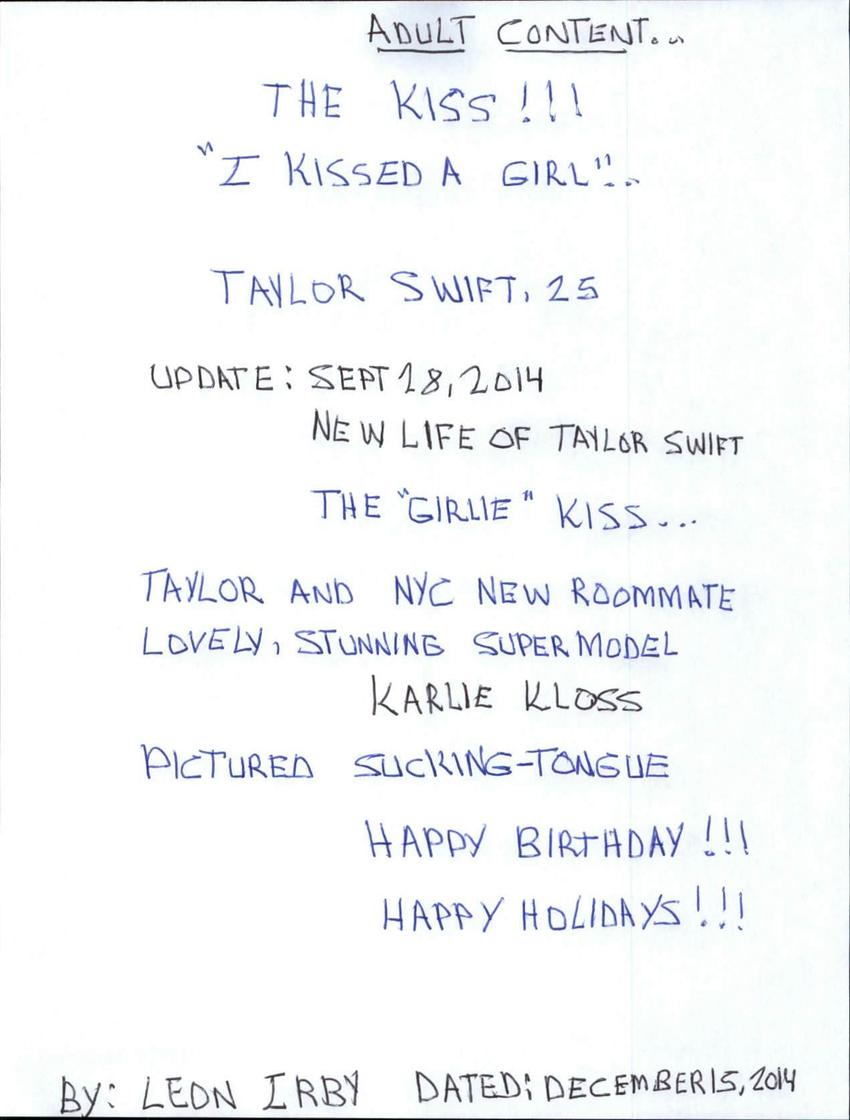 ADULT CONTENT...
THE KISS!!!
"I KISSED A GIRL"...
TAYLOR SWIFT, 25
UPDATE: SEPT 18, 2014
NEW LIFE OF TAYLOR SWIFT
THE "GIRLIE" KISS...
TAYLOR AND NYC NEW ROOMMATE
LOVELY, STUNNING SUPERMODEL
KARLIE KLOSS
PICTURED SUCKING-TONGUE
HAPPY BIRTHDAY!!!
HAPPY HOLIDAYS!!!
BY: LEON IRBY DATED: DECEMBER 15, 2014